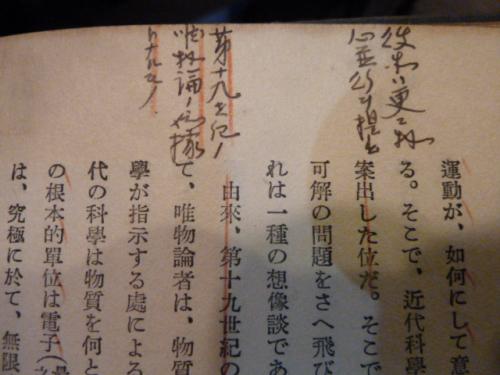 第十九世紀ノ
唯物論ノ
運動が、如何にして意
る。そこで、近代科學
案出した位だ。そこで
可解の問題をさへ飛び
れは一種の想像談であ
由來、第十九世紀の
て、唯物論者は、物質
學が指示する處による
代の科學は物質を何と
の根本的單位は電子(
は、究極に於て、無限